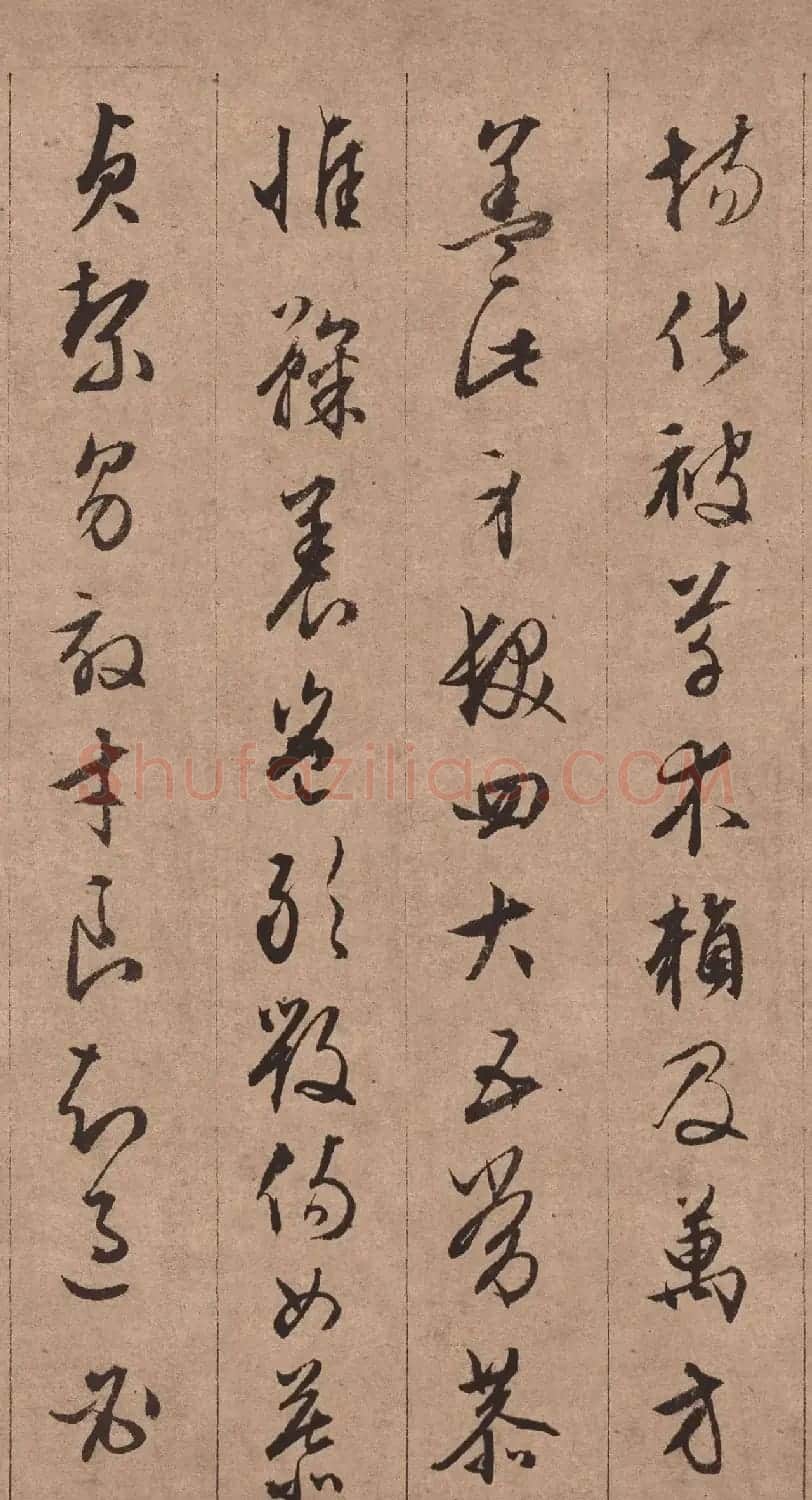 場化被草木賴及萬方
蓋此身髮四大五常恭
惟鞠養豈敢毀傷女慕
貞絜男效才良知過必
Shufaziliao.COM